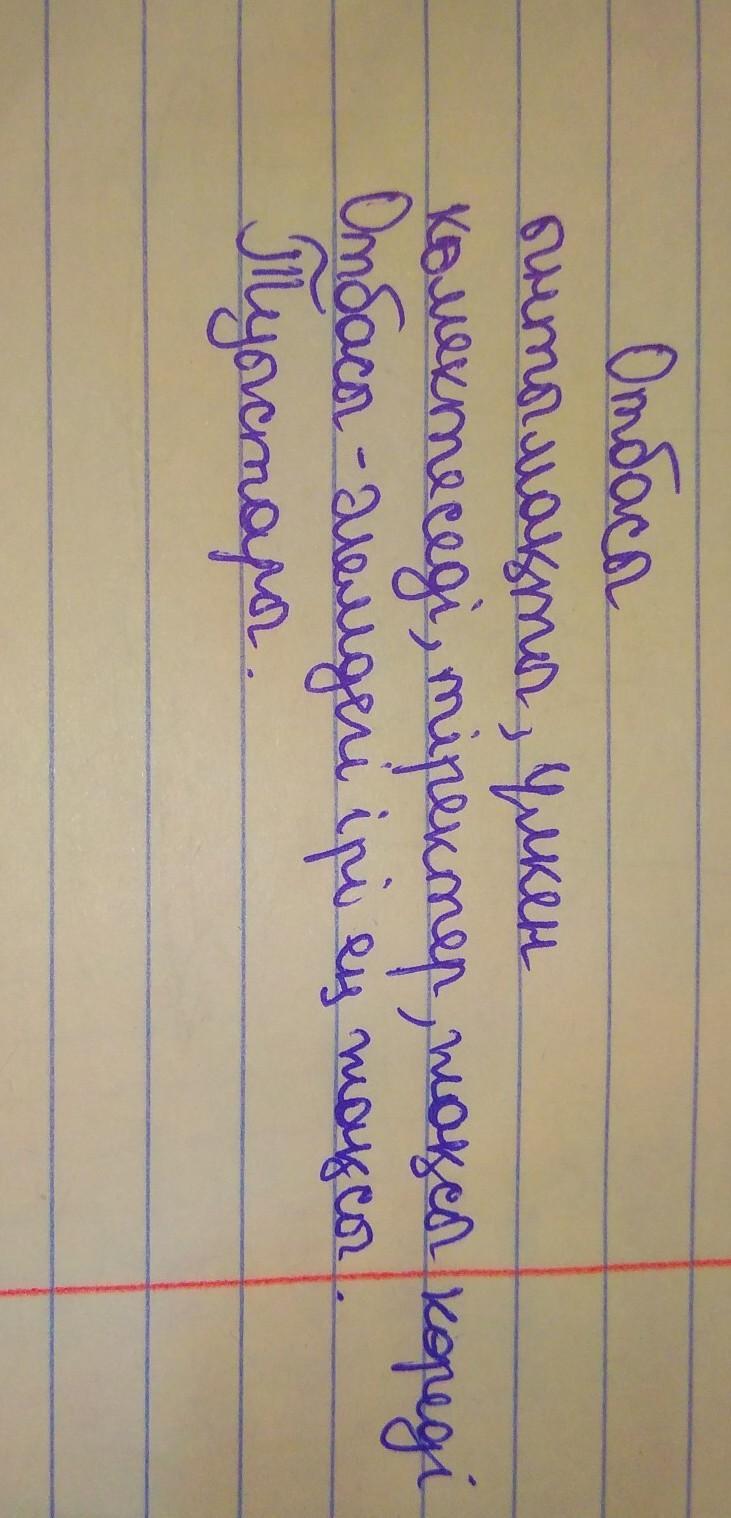 Отбасы
ынтымақты, Үлкен
көмектеседі, тіректер, жақсы көреді
Отбасы - Әлемдегі ірі ең жақсы.
Туыстары.